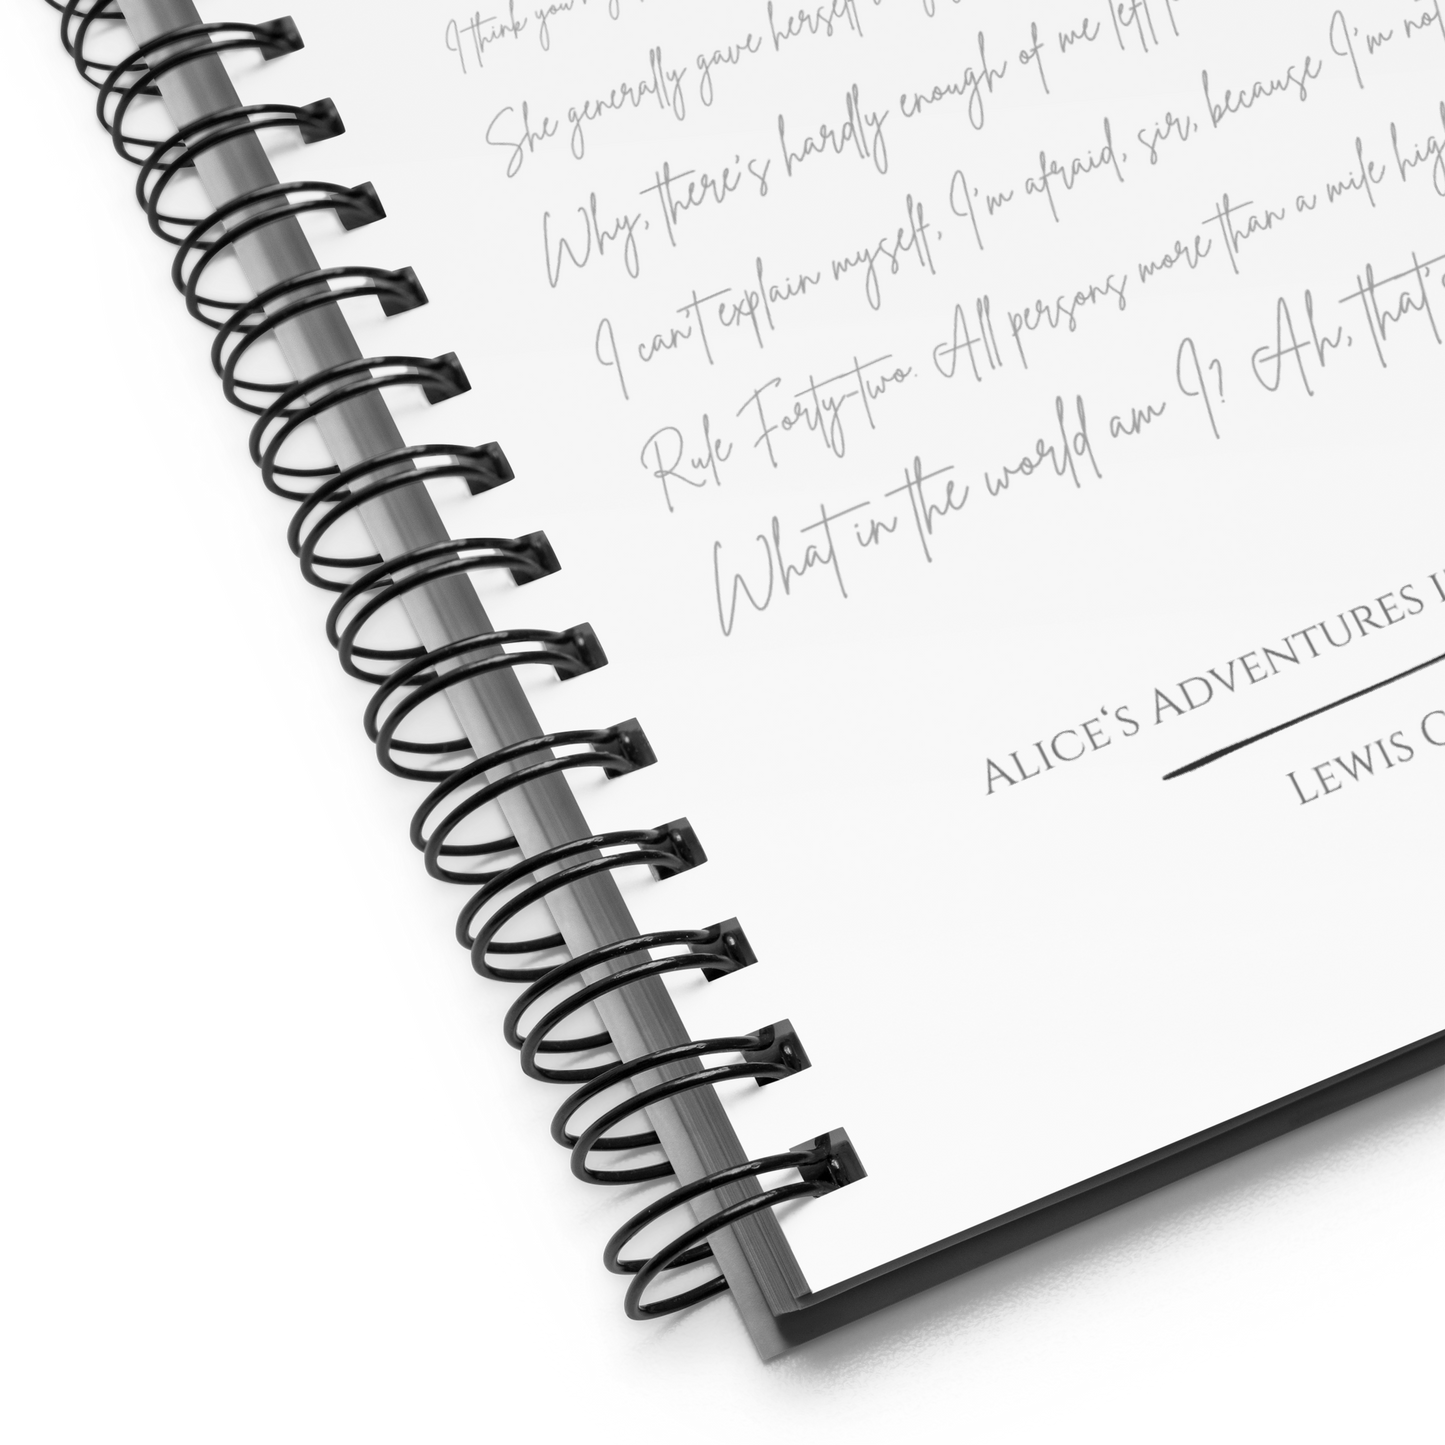 I think you
She generally gave herself
Why, there's hardly enough of me left
I can't explain myself, I'm afraid, sir, because I'm not
Rule Forty-two. All persons more than a mile hig
What in the world am I? Ah, that's
ALICE'S ADVENTURES I
LEWIS C